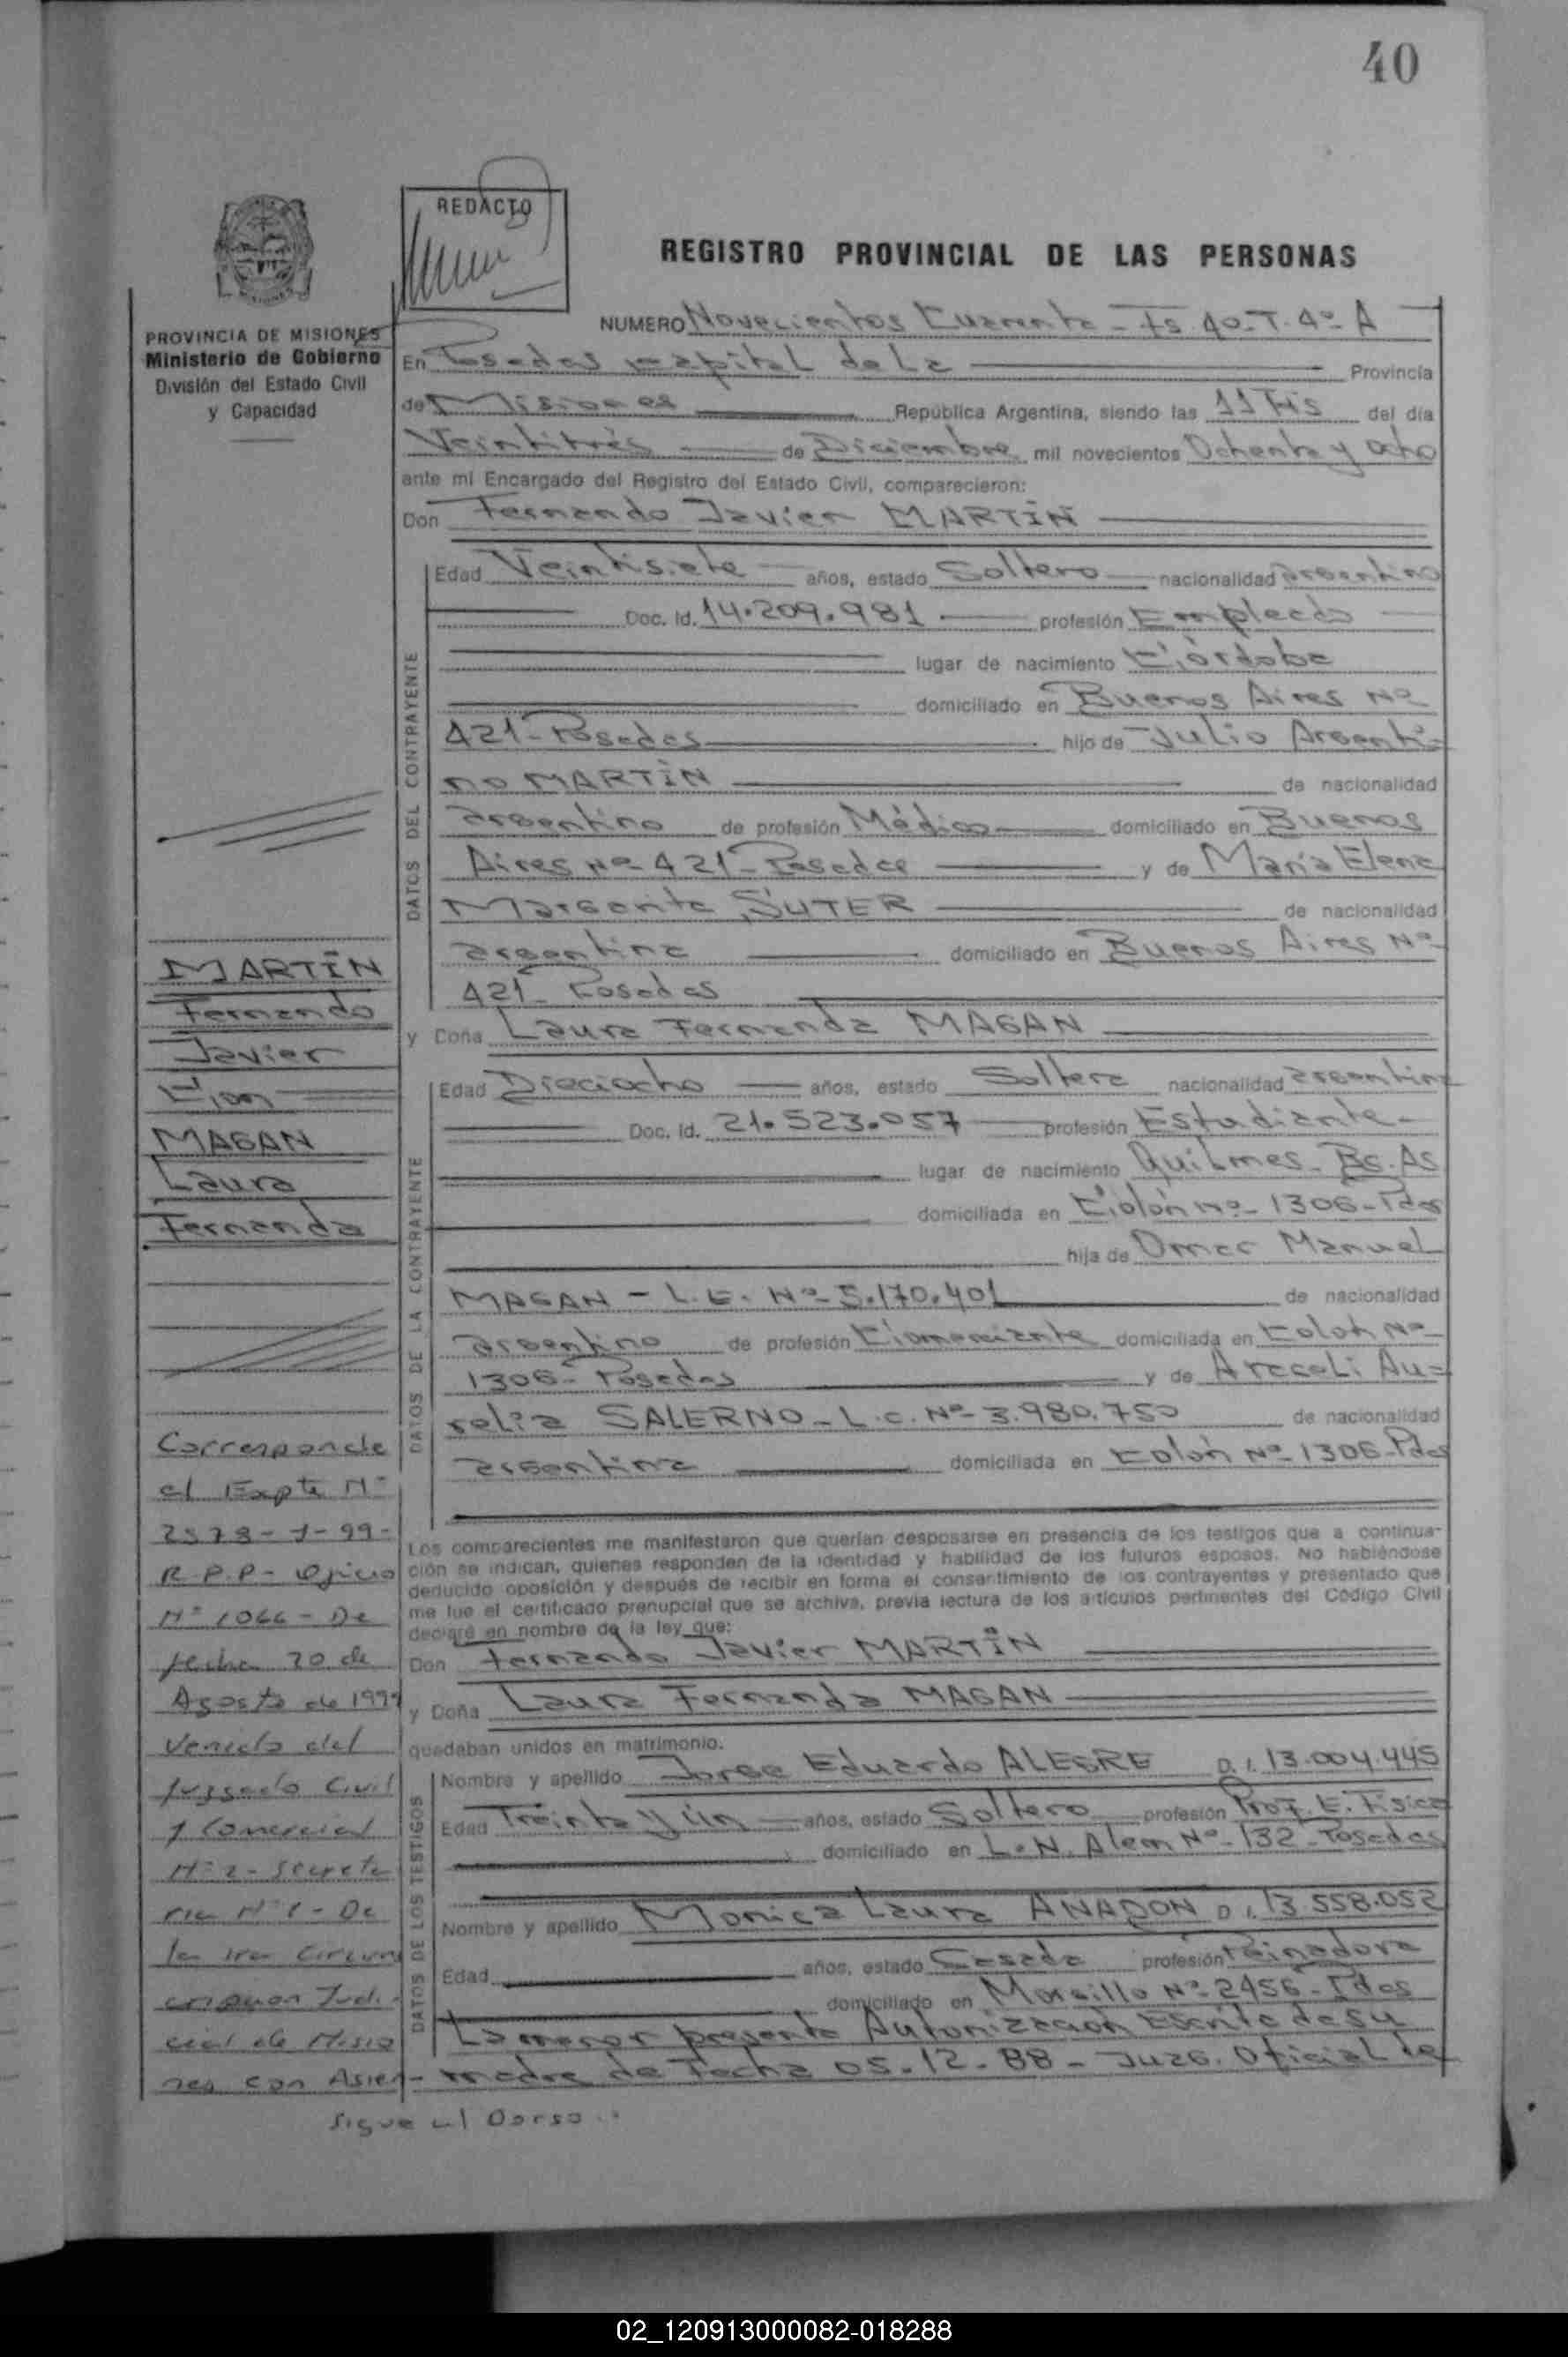 40
REDACTO
REGISTRO PROVINCIAL DE LAS PERSONAS
PROVINCIA DE MISIONES
Ministerio de Gobierno
División del Estado Civil
y Capacidad
NUMERO Novecientos Cuarenta - Fs 40-T. 4º A
En Posadas capital de la Provincia
de Misiones República Argentina, siendo las 11 Hs del día
Veintitrés de Diciembre mil novecientos Ochenta y Ocho
ante mí Encargado del Registro del Estado Civil, comparecieron:
Don Fernando Javier MARTÍN
DATOS DEL CONTRAYENTE
Edad Veintisiete años, estado Soltero nacionalidad argentino
Doc. Id. 14.209.981 profesión Empleado
lugar de nacimiento Córdoba
domiciliado en Buenos Aires Nº
421-Posadas hijo de Julio Argenti-
no MARTÍN de nacionalidad
argentino de profesión Médico domiciliado en Buenos
Aires Nº 421-Posadas y de María Elena
Margarita SUTER de nacionalidad
argentina domiciliado en Buenos Aires Nº
421-Posadas
y Doña Laura Fernanda MAGAN
DATOS DE LA CONTRAYENTE
Edad Dieciocho años, estado Soltera nacionalidad argentina
Doc. Id. 21.523.057 profesión Estudiante-
lugar de nacimiento Quilmes-Bs.As
domiciliada en Colón Nº-1306-Pdas
hija de Omar Manuel
MAGAN - L.E. Nº-5.170.401 de nacionalidad
argentino de profesión Comerciante domiciliada en Colón Nº
1306-Posadas y de Araceli Au=
relia SALERNO-L.C. Nº-3.980.750 de nacionalidad
argentina domiciliada en Colón Nº-1306-Pdas
Los comparecientes me manifestaron que querían desposarse en presencia de los testigos que a continua-
ción se indican, quienes responden de la identidad y habilidad de los futuros esposos. No habiéndose
deducido oposición y después de recibir en forma el consentimiento de los contrayentes y presentado que
me fue el certificado prenupcial que se archiva, previa lectura de los artículos pertinentes del Código Civil
declaré en nombre de la ley que:
Don Fernando Javier MARTÍN
y Doña Laura Fernanda MAGAN
quedaban unidos en matrimonio.
DATOS DE LOS TESTIGOS
Nombre y apellido Jorge Eduardo ALEGRE D.I. 13.004.445
Edad Treinta y Un años, estado Soltero profesión Prof. E. Física
domiciliado en L.N. Alem Nº-132-Posadas
Nombre y apellido Monica Laura ANADON D.I. 13.558.052
Edad años, estado Casada profesión Peinadora
domiciliado en Nº-2456-Pdas
La menor presenta Autorización Escrita de su
madre de Fecha 05-12-88- Juzg. Oficial de
MARTÍN
Fernando
Javier
Con
MAGAN
Laura
Fernanda
Corresponde
al Expte Nº
R.P.P- Oficio
Nº 1066 - De
fecha 20 de
Agosto de 1999
Venido del
Juzgado Civil
y Comercial
Nº 2 - Secreta
ria Nº 1 - De
la 1ra Circuns
cripcion Judi-
cial de Misio
nes con Asien-
Sigue al Dorso..
02_120913000082-018288